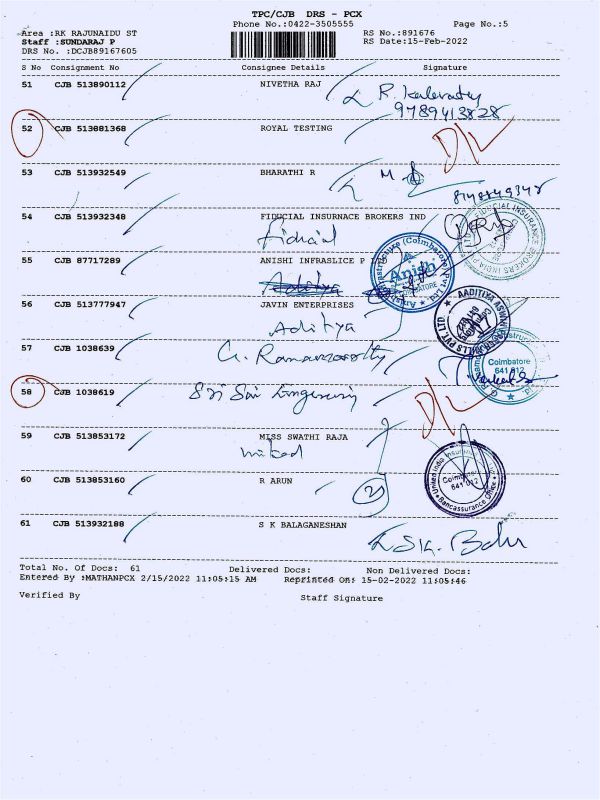 TPC/CJB DRS - PCX
Phone No.:0422-3505555 Page No.:5
Area :RK RAJUNAIDU ST RS No.:891676
Staff :SUNDARAJ P RS Date:15-Feb-2022
DRS No. :DCJB89167605
S No Consignment No Consignee Details Signature
51 CJB 513890112 NIVETHA RAJ
9789413828
52 CJB 513881368 ROYAL TESTING
D/L
53 CJB 513932549 BHARATHI R
54 CJB 513932348 FIDUCIAL INSURNACE BROKERS IND
55 CJB 87717289 ANISHI INFRASLICE P LTD
Anishi
56 CJB 513777947 JAVIN ENTERPRISES
Aditya
57 CJB 1038639
Coimbatore
641 012
58 CJB 1038619
Sri Sai
D/L
59 CJB 513853172 MISS SWATHI RAJA
60 CJB 513853160 R ARUN
641 012
Bancassurance Office
61 CJB 513932188 S K BALAGANESHAN
Total No. Of Docs: 61 Delivered Docs: Non Delivered Docs:
Entered By :MATHANPCX 2/15/2022 11:05:15 AM Reprinted On: 15-02-2022 11:05:46
Verified By Staff Signature